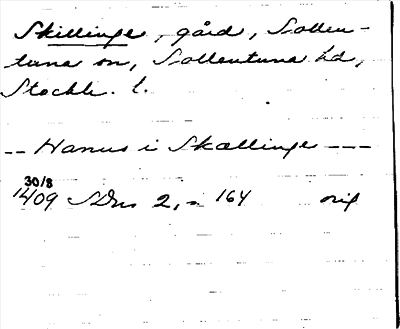 Skillinge, gård, Sollen-
tuna sn, Sollentuna hd,
Stockh. l.
-- Hanus i Skællinge ---
30/8
1409 SDns 2, s 164 orig